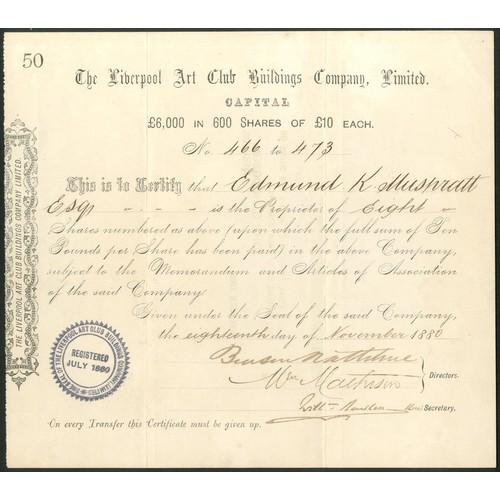 50
The Liverpool Art Club Buildings Company, Limited.
CAPITAL
£6,000 IN 600 SHARES OF £10 EACH.
No. 466 to 473
This is to Certify that Edmund K. Muspratt
Esqr is the Proprietor of Eight
Shares numbered as above (upon which the full sum of Ten
Pounds per Share has been paid) in the above Company,
subject to the Memorandum and Articles of Association
of the said Company.
Given under the Seal of the said Company,
the eighteenth day of November 1880
Directors.
Secretary.
On every Transfer this Certificate must be given up.
THE LIVERPOOL ART CLUB BUILDINGS COMPANY LIMITED.
THE SEAL OF THE LIVERPOOL ART CLUB BUILDINGS COMPANY LIMITED
REGISTERED
JULY 1880